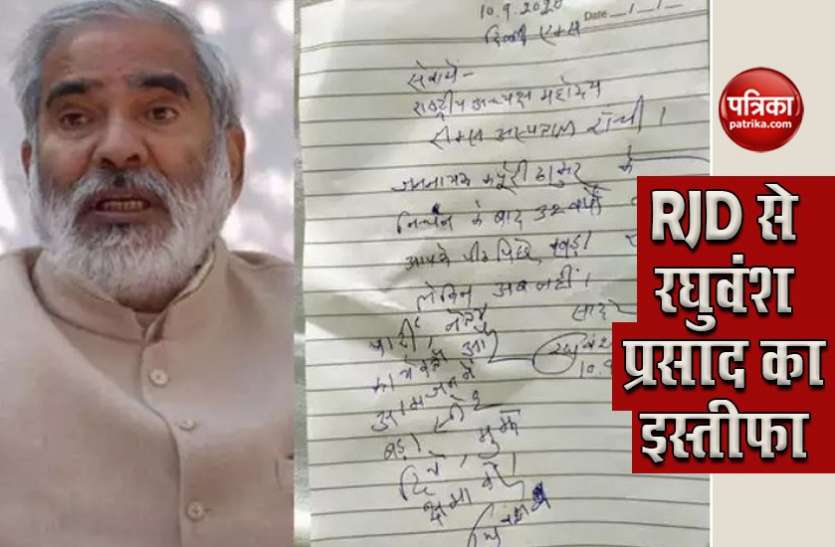 10.9.2020
Date
दिल्ली एम्स
सेवामें-
राष्ट्रीय अध्यक्ष महोदय
रिम्स अस्पताल राँची।
जननायक कर्पूरी ठाकुर के
निधन के बाद 32 वर्षों
आपके पीठ पीछे खड़ा
लेकिन अब नहीं।
पार्टी, नेता
कार्यकर्ता
आमजन ने
बड़ा स्नेह
दिया, मुझे
क्षमा करें।
10.9
पत्रिका
patrika.com
RJD से
रघुवंश
प्रसाद का
इस्तीफा